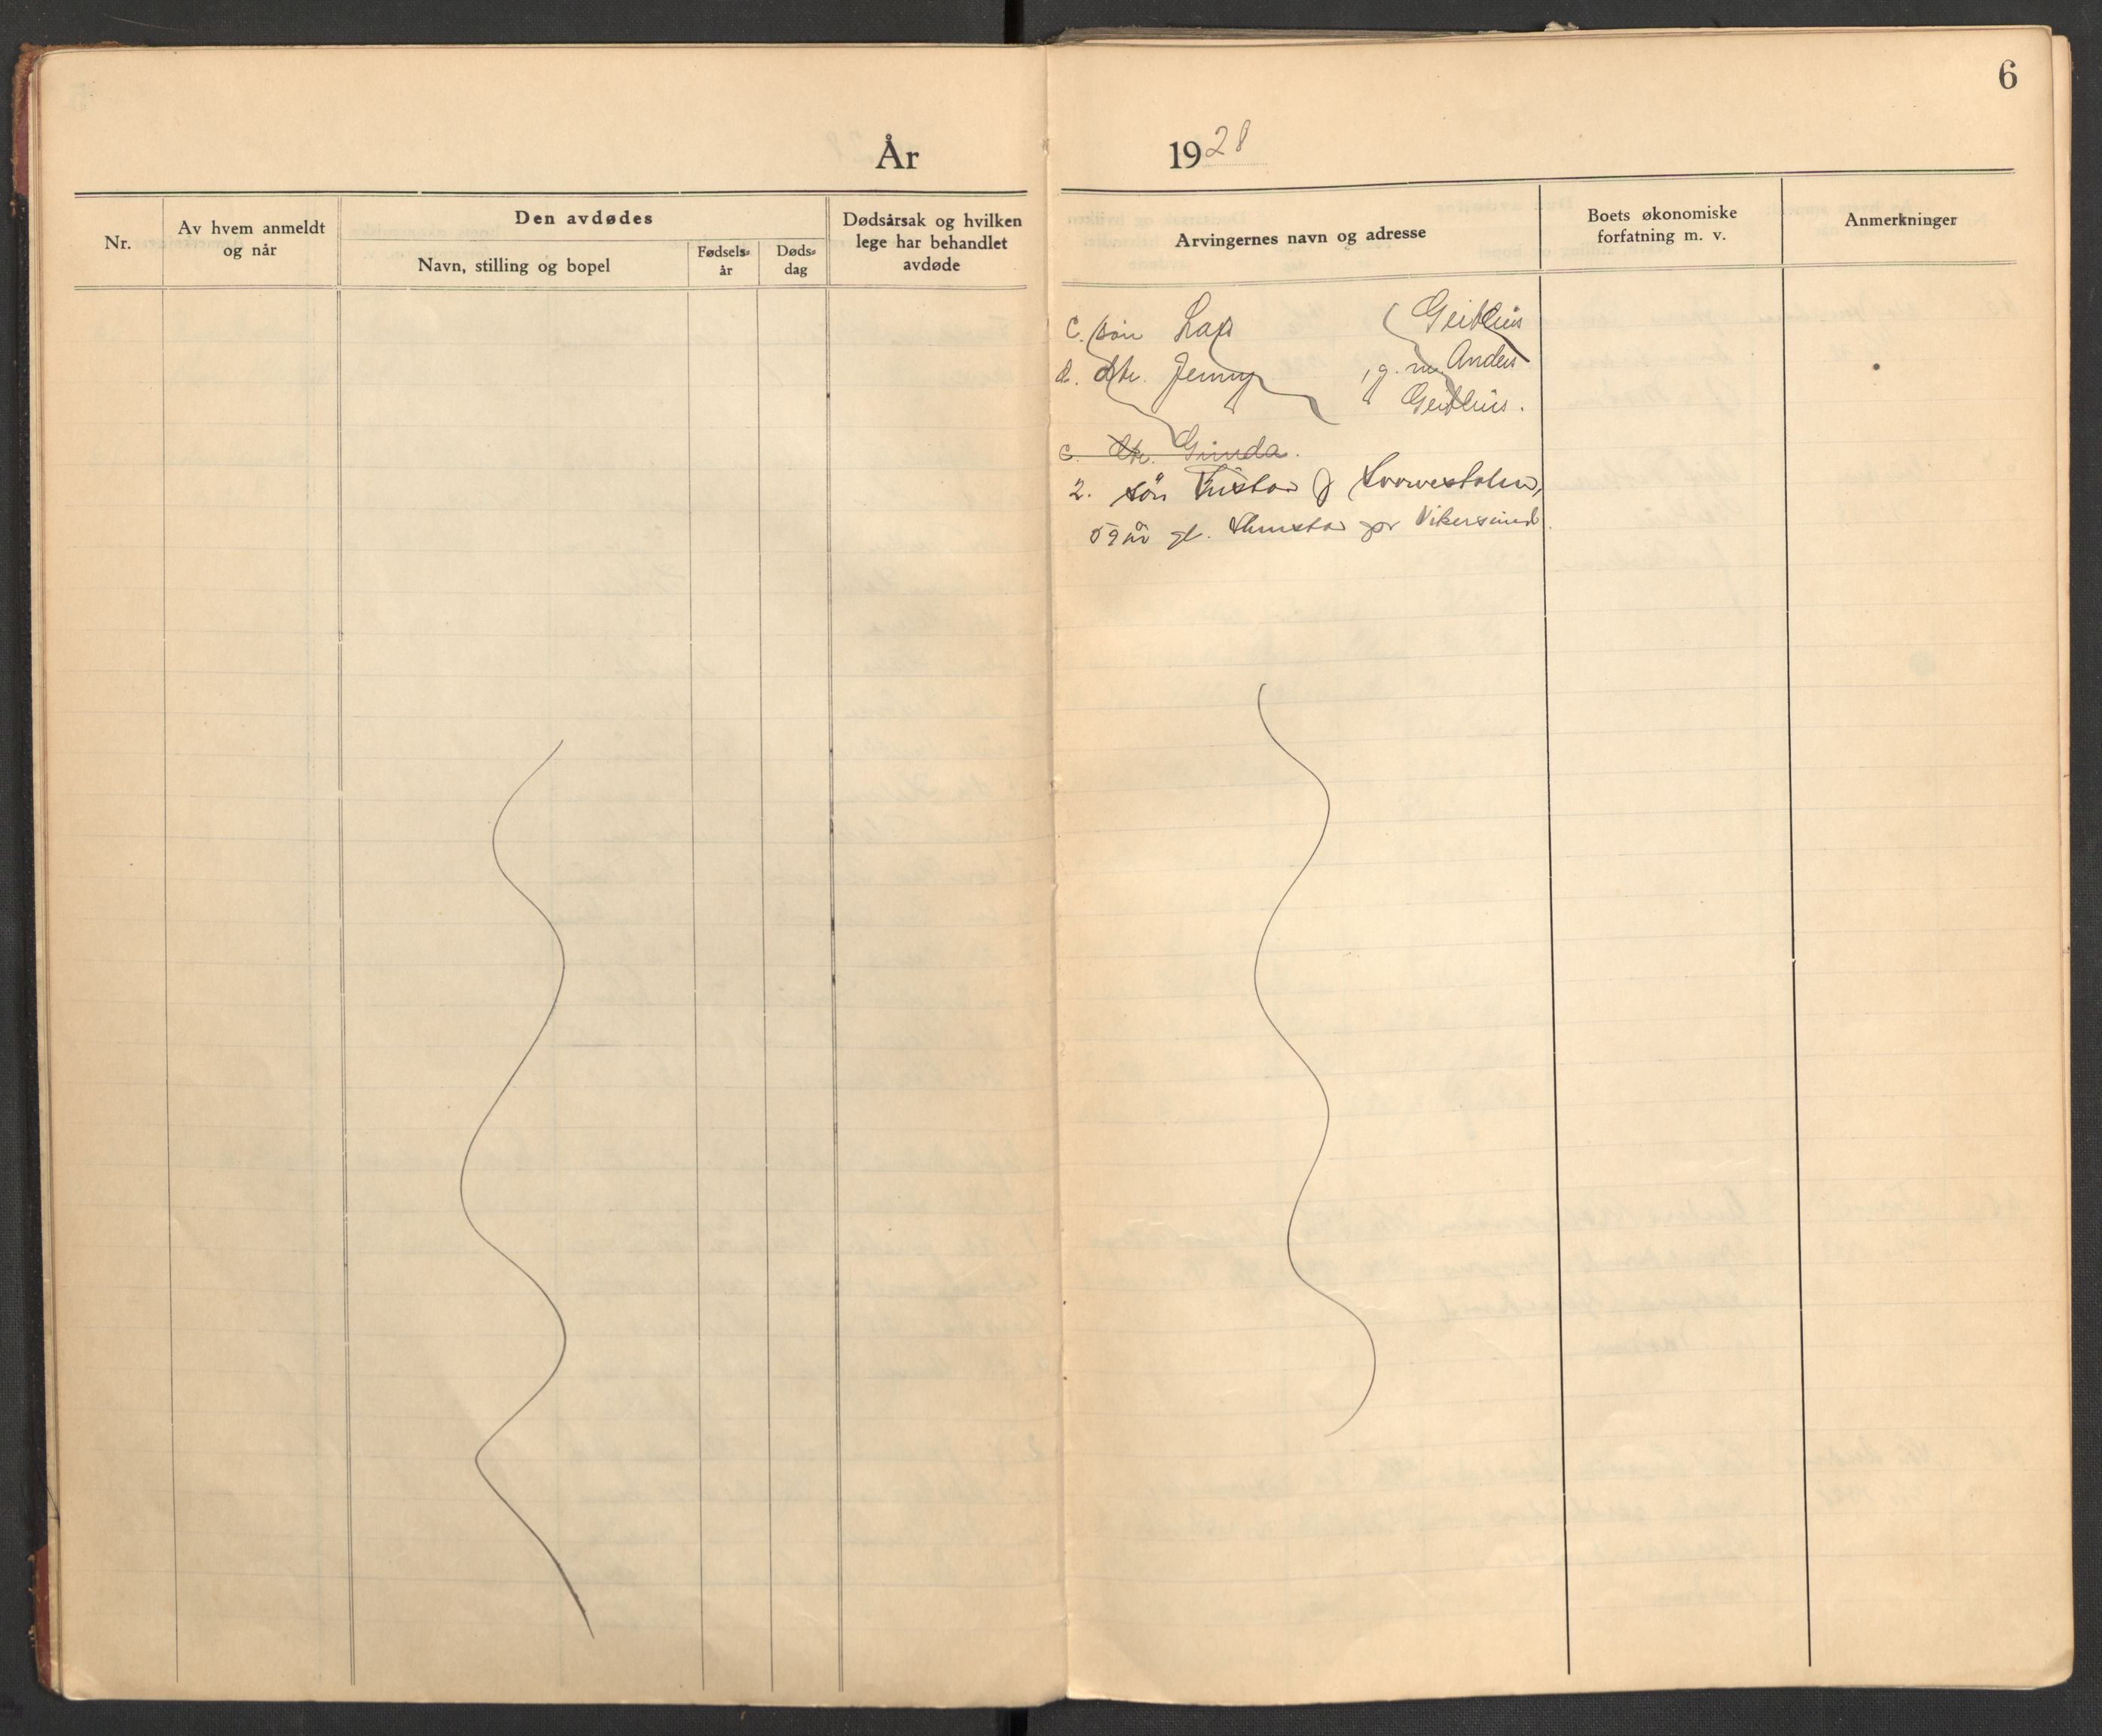 6
År 1928
Nr.
Av hvem anmeldt
og når
Den avdødes
Navn, stilling og bopel
Fødsels-
år
Døds-
dag
Dødsårsak og hvilken
lege har behandlet
avdøde
Arvingernes navn og adresse
Boets økonomiske
forfatning m. v.
Anmerkninger
c. søn Lars
d. dtr. Jenny, g. m. Anders
c. dtr. Gunda.
2. søn
59 år gl. pr Vikersund.